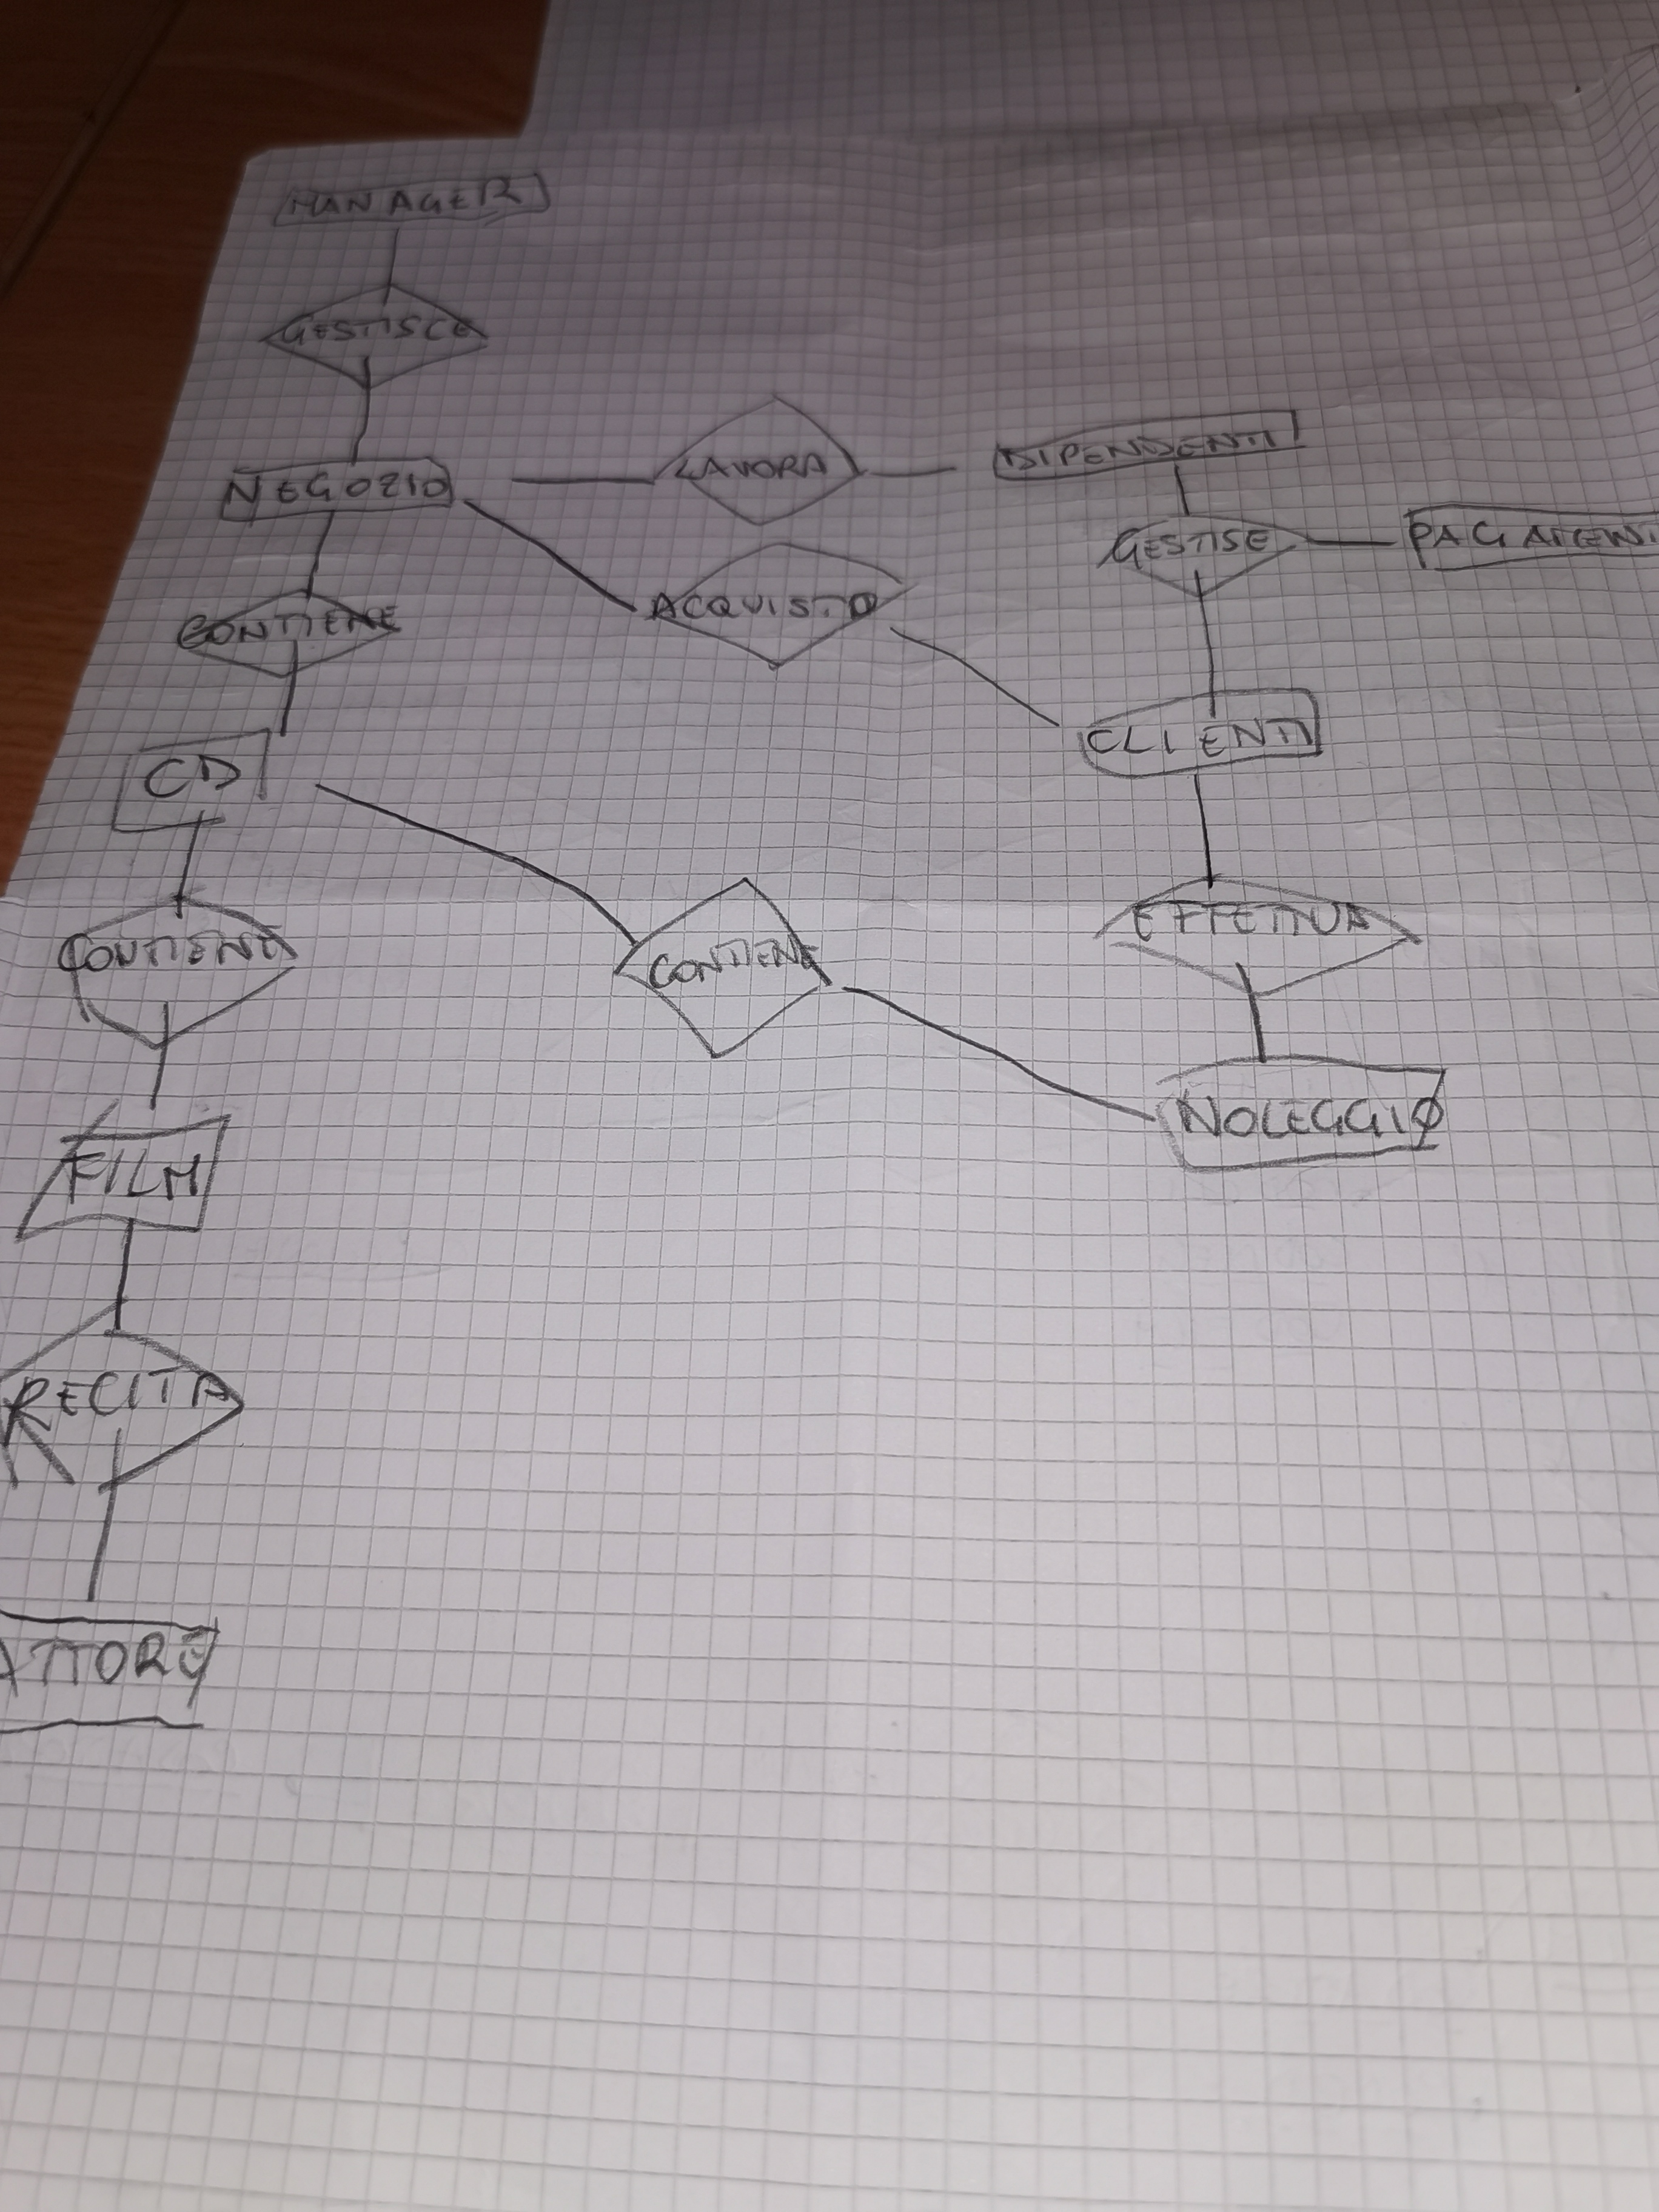 MANAGER
GESTISCE
NEGOZIO
LAVORA
DIPENDENTI
GESTISE
ACQUISTO
CONTIENE
CLIENTI
CD
CONTIENE
CONTIENE
EFFETTUA
FILM
NOLEGGIO
RECITA
ATTORE